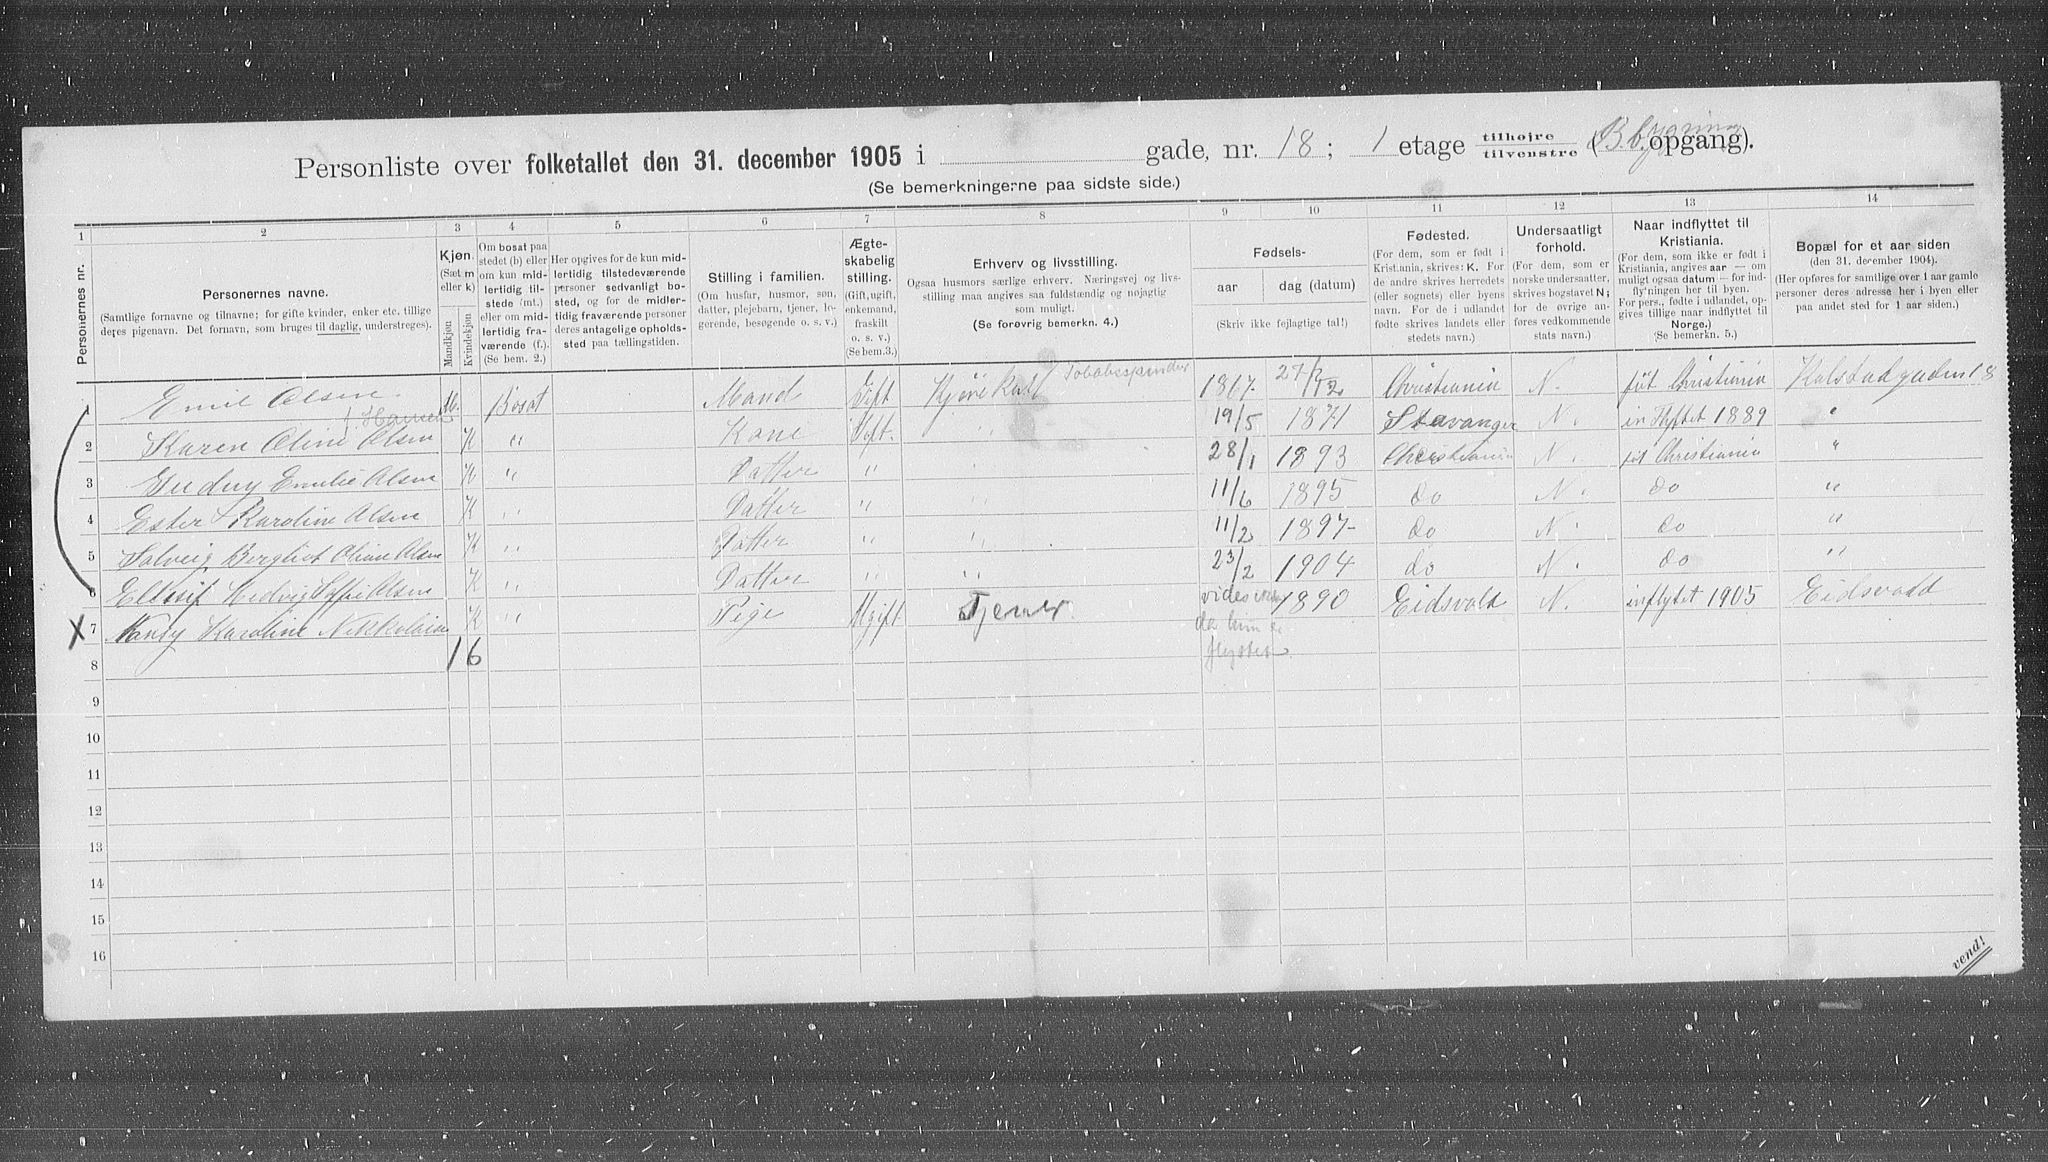 Personliste over folketallet den 31. december 1905 i gade, nr. 18; 1 etage tilhøjre tilvenstre (B bygning opgang).
(Se bemerkningerne paa sidste side.)
1 2 3 4 5 6 7 8 9 10 11 12 13 14
Personernes nr.
Personernes navne.
(Samtlige fornavne og tilnavne; for gifte kvinder, enker etc. tillige
deres pigenavn. Det fornavn, som bruges til daglig, understreges).
Kjøn.
(Sæt m
eller k)
Mandkjøn
Kvindekjøn
Om bosat paa
stedet (b) eller
om kun mid-
lertidig til-
stede (mt.)
eller om mid-
lertidig fra-
værende (f.).
(Se bem. 2.)
Her opgives for de kun mid-
lertidig tilstedeværende
personer sedvanligt bo-
sted, og for de midler-
tidig fraværende personer
deres antagelige opholds-
sted paa tællingstiden.
Stilling i familien.
(Om husfar, husmor, søn,
datter, plejebarn, tjener, lo-
gerende, besøgende o. s. v.)
Ægte-
skabelig
stilling.
(Gift, ugift,
enkemand,
fraskilt
o. s. v.)
(Se bem.3.)
Erhverv og livsstilling.
Ogsaa husmors særlige erhverv. Næringsvej og livs-
stilling maa angives saa fuldstændig og nøjagtig
som muligt.
(Se forøvrig bemerkn. 4.)
Fødsels-
aar dag (datum)
(Skriv ikke fejlagtige tal!)
Fødested.
(For dem, som er født i
Kristiania, skrives: K. For
de andre skrives herredets
(eller sognets) eller byens
navn. For de i udlandet
fødte skrives landets eller
stedets navn.)
Undersaatligt
forhold.
(For dem, som er
norske undersaatter,
skrives bogstavet N;
for de øvrige an-
føres vedkommende
stats navn.)
Naar indflyttet til
Kristiania.
(For dem, som ikke er født i
Kristiania, angives aar — om
muligt ogsaa datum — for ind-
flytningen her til byen.
For pers., fødte i udlandet, op-
gives tillige naar indflyttet til
Norge.)
(Se bemerkn. 5.)
Bopæl for et aar siden
(den 31. december 1904).
(Her opføres for samtlige over 1 aar gamle
personer deres adresse her i byen eller
paa andet sted for 1 aar siden.)
1 Emil Olsen M. Bosat Mand Gift Tobaksspinder 1867 27/12 Christiania N. føt Christiania Kalstadgaden 18
f. Hansen
2 Karen Oline Olsen K " Kone Gift 19/5 1871 Stavanger N. inflyttet 1889 "
3 Gudny Emilie Olsen K " Datter " 28/1 1893 Christiania N. føt Christiania "
4 Ester Karoline Olsen K " Datter " 11/6 1895 do N. do "
5 Solveig Bergliot Oline Olsen K " Datter " 11/2 1897 do N. do "
6 Ellisif Hedvig Olsen K " Datter " 23/2 1904 do N. do "
X 7 Nansy Karoline K " Pige Ugift Tjener vides ikke 1890 Eidsvold N. inflytet 1905 Eidsvold
da hun er
flyttet
8 1 6
9
10
11
12
13
14
15
16
vend!